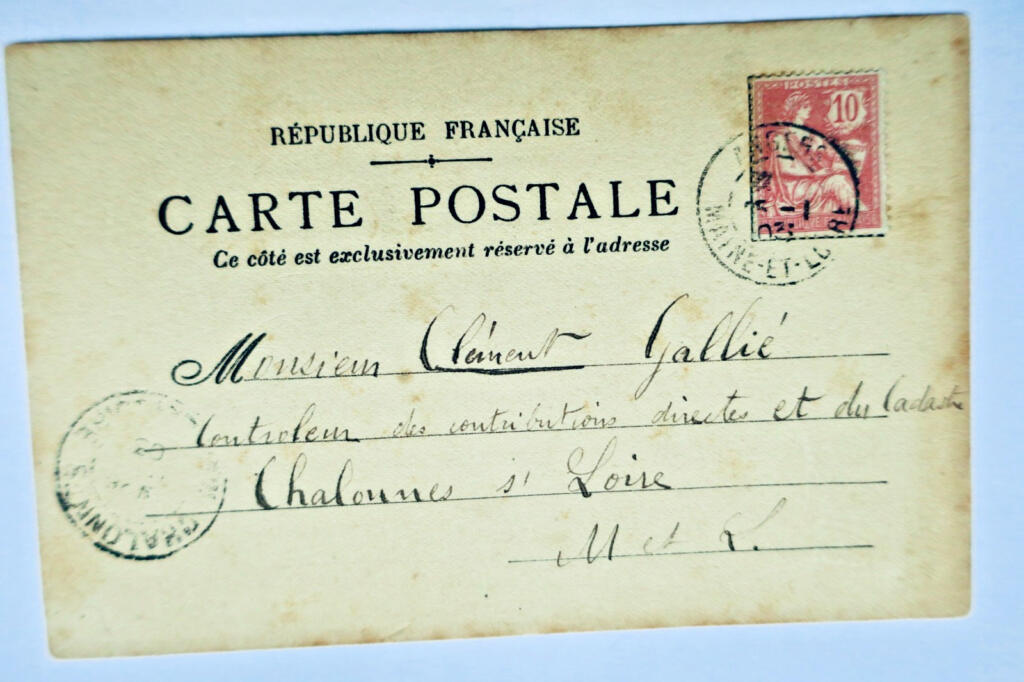 RÉPUBLIQUE FRANÇAISE
CARTE POSTALE
Ce côté est exclusivement réservé à l'adresse
POSTES
10
ANGERS
MAINE-ET-LOIRE
Monsieur Clément Gallié
Controleur des contributions directes et du Cadastre
Chalonnes s/ Loire
M et L.
CHALONNES